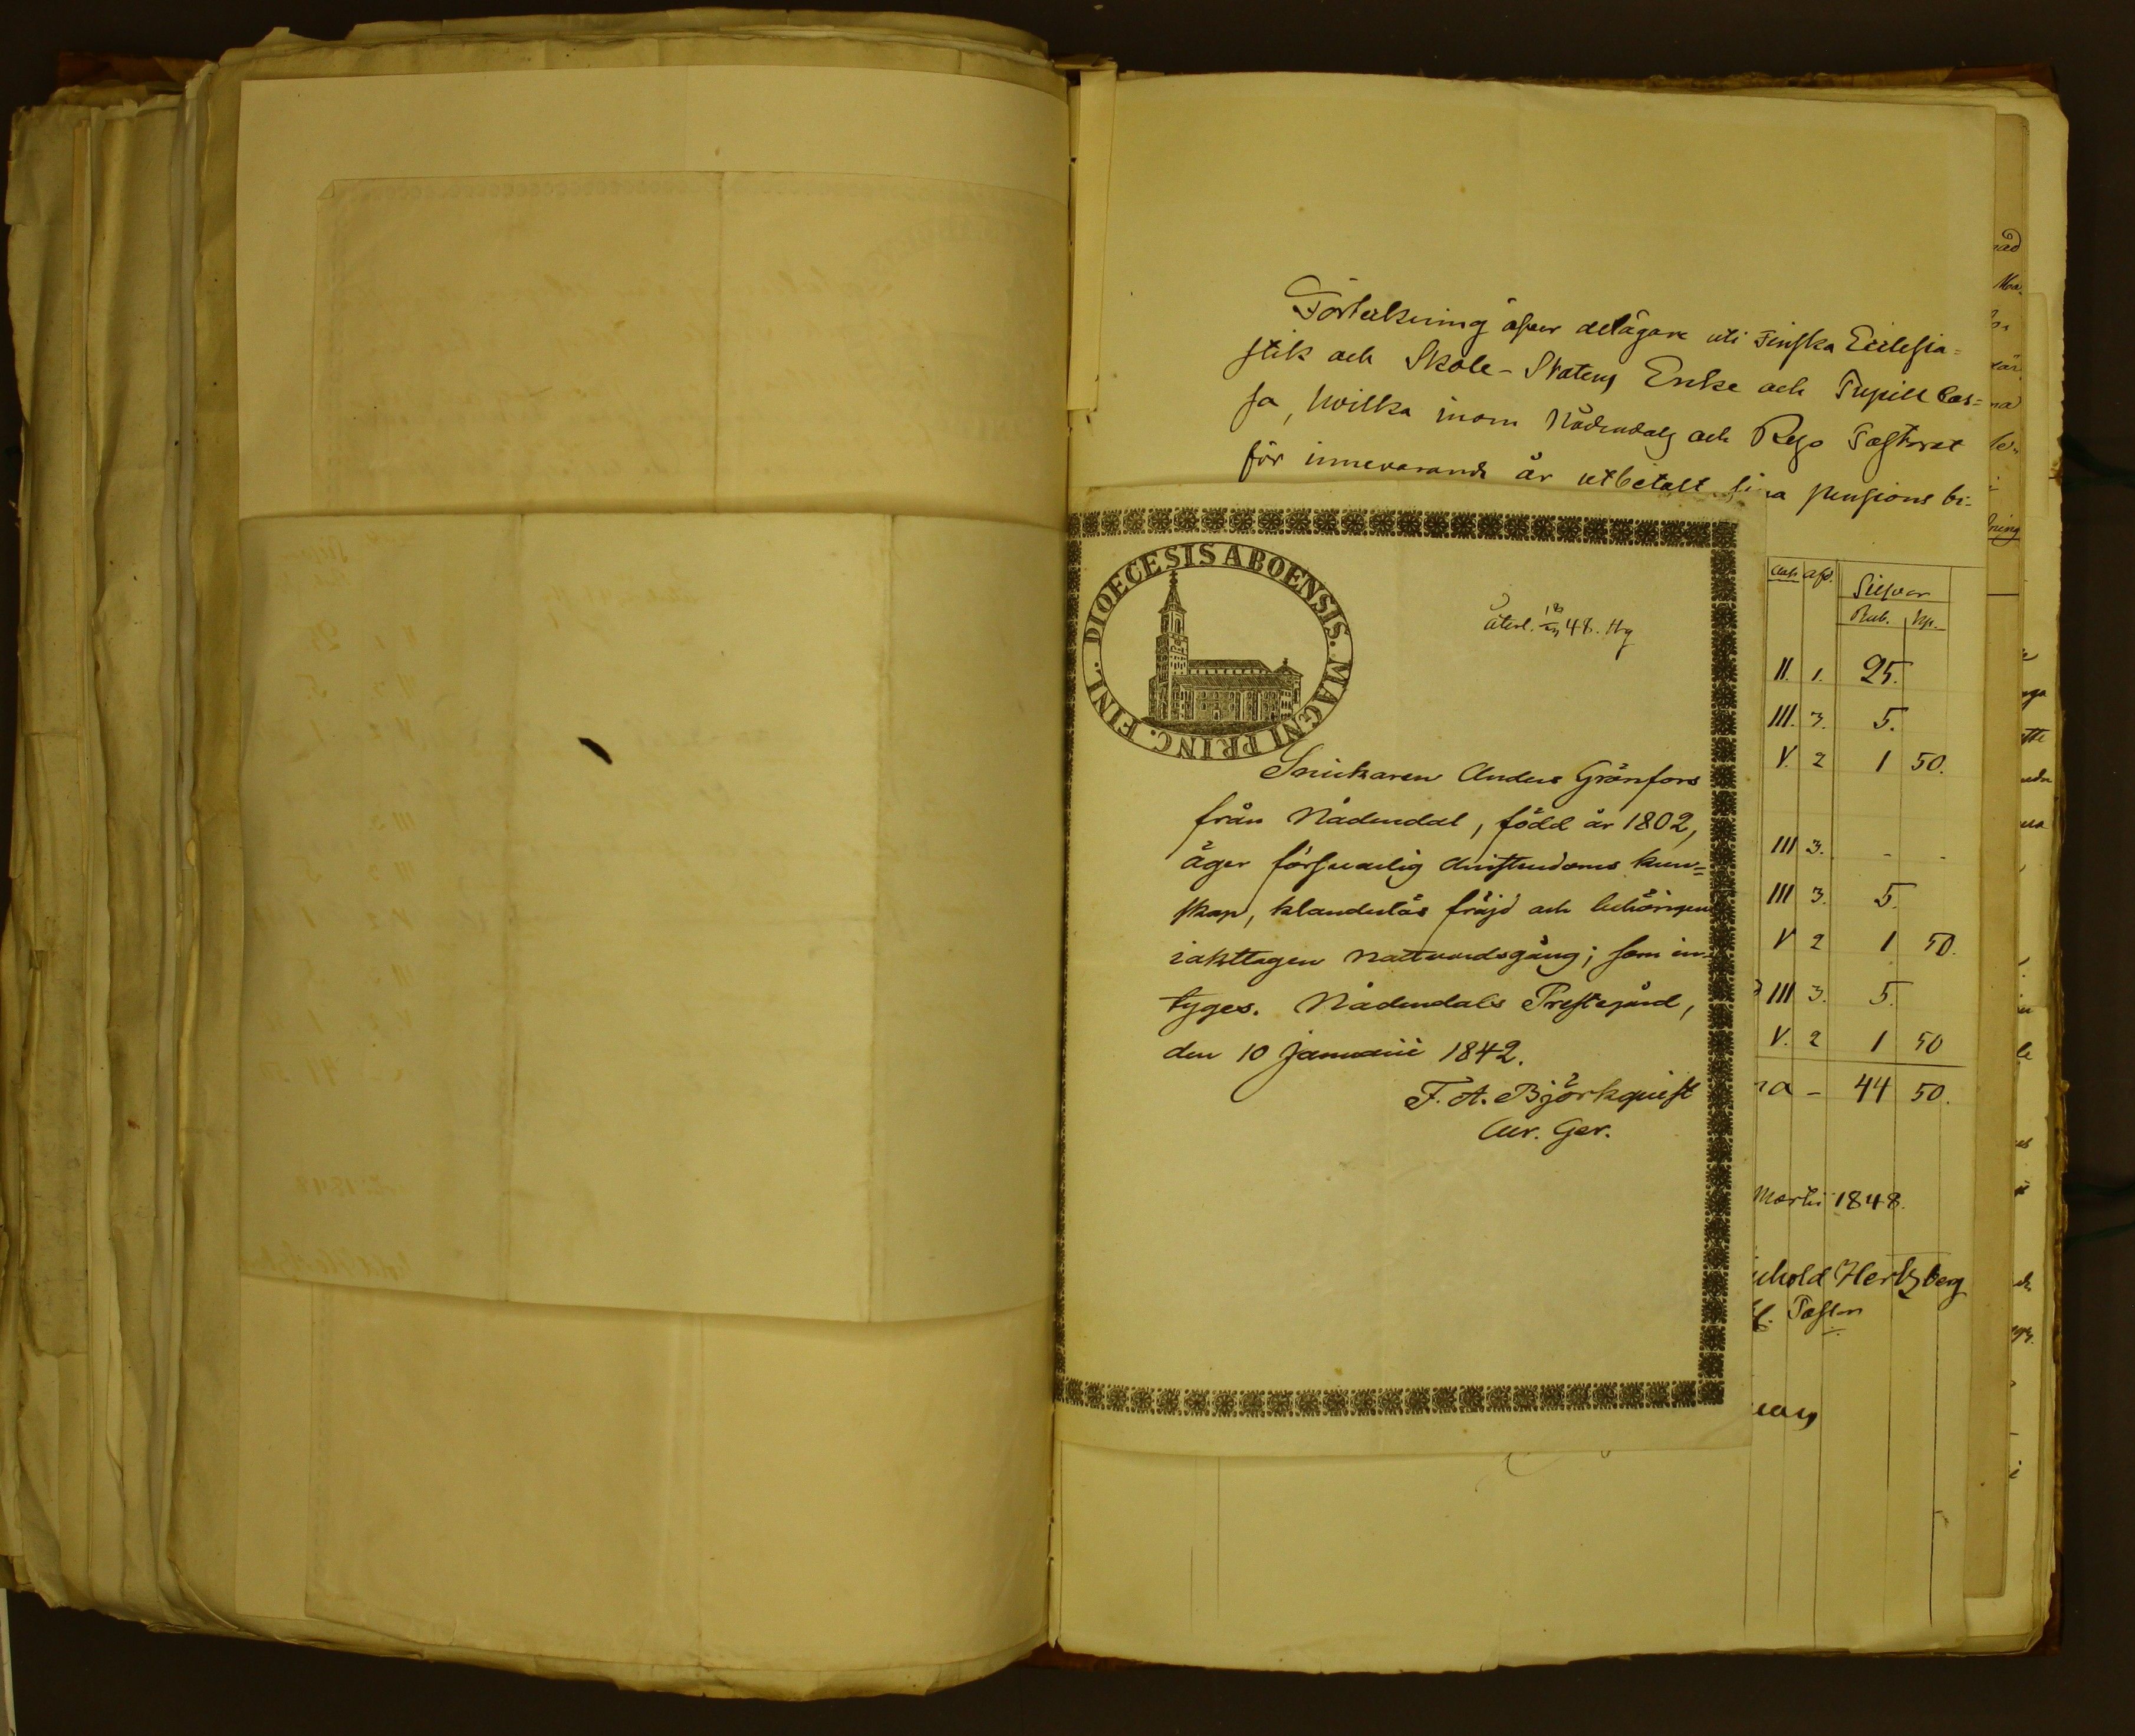 Förteckning öfver delägare uti Finska Ecclesia=
stik och Skole-Statens Enke och Pupill Cas=
sa, hvilka inom Nådendals och Reso Pastorat
för innevarande år utbetalt sina pensions bi-
DIOECESIS ABOENSIS. MAGNI PRINC. FINL.
återl. 48. Hg
Snickaren Anders Grönfors
från Nådendal, född år 1802,
äger försvarlig christendoms kun=
skap, klanderlös fräjd och behörigen
iakttagen nattvardsgång; som in-
tyges. Nådendals Prestegård,
den 10 Januarii 1842.
F. A. Björkqvist
Cur. Ger.
afd. Silfver
Rub. Kp.
II. 1. 25.
III. 3. 5.
V. 2 1 50.
III 3. - -
III 3. 5.
V 2 1 50.
III 3. 5.
V. 2 1 50
a - 44 50.
Martii 1848.
hold Hertzberg
Pastor